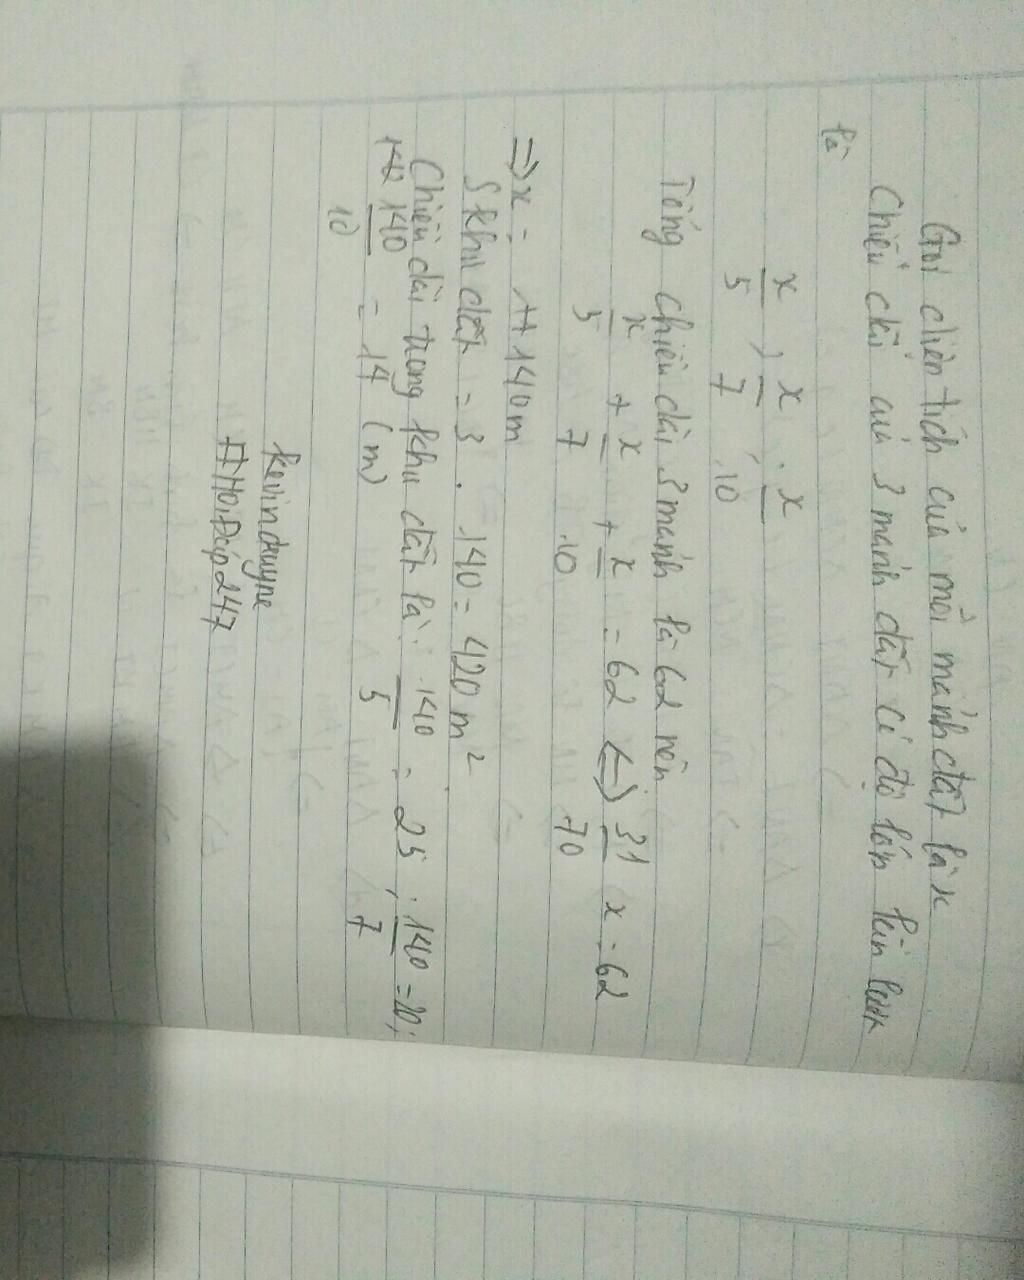 Gọi diện tích của mỗi mảnh đất là x
Chiều dài của 3 mảnh đất có độ lớn lần lượt
là
x/5 , x/7 , x/10
Tổng chiều dài 3 mảnh là 62 nên
x/5 + x/7 + x/10 = 62 <=> 31/70 x = 62
=> x = 140m
S khu đất = 3 . 140 = 420 m²
Chiều dài trong khu đất là : 140/5 = 25 ; 140/7 = 20 ;
140/10 = 14 (m)
kevindwyne
#HỏiĐáp247